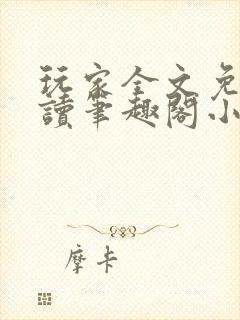 玩家全文免
讀筆趣閣小
摩卡